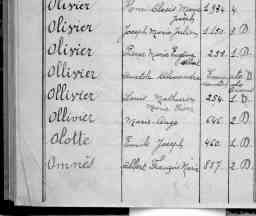 Olivier Pierre Alexis Marie Joseph 1.934 4
Olivier Joseph Marie Julien 1.150 1 D.
Olivier Pierre Marie Eugène 251. 1 D.
Ollivier Anatole Alexandre
Ollivier Louis Mathurin Marie 254. 1 D.
Ollivier Marie-Ange 646. 2 D.
Olotte Emile Joseph 460. 1 D.
Omnès Albert François Marie 857. 2 D.